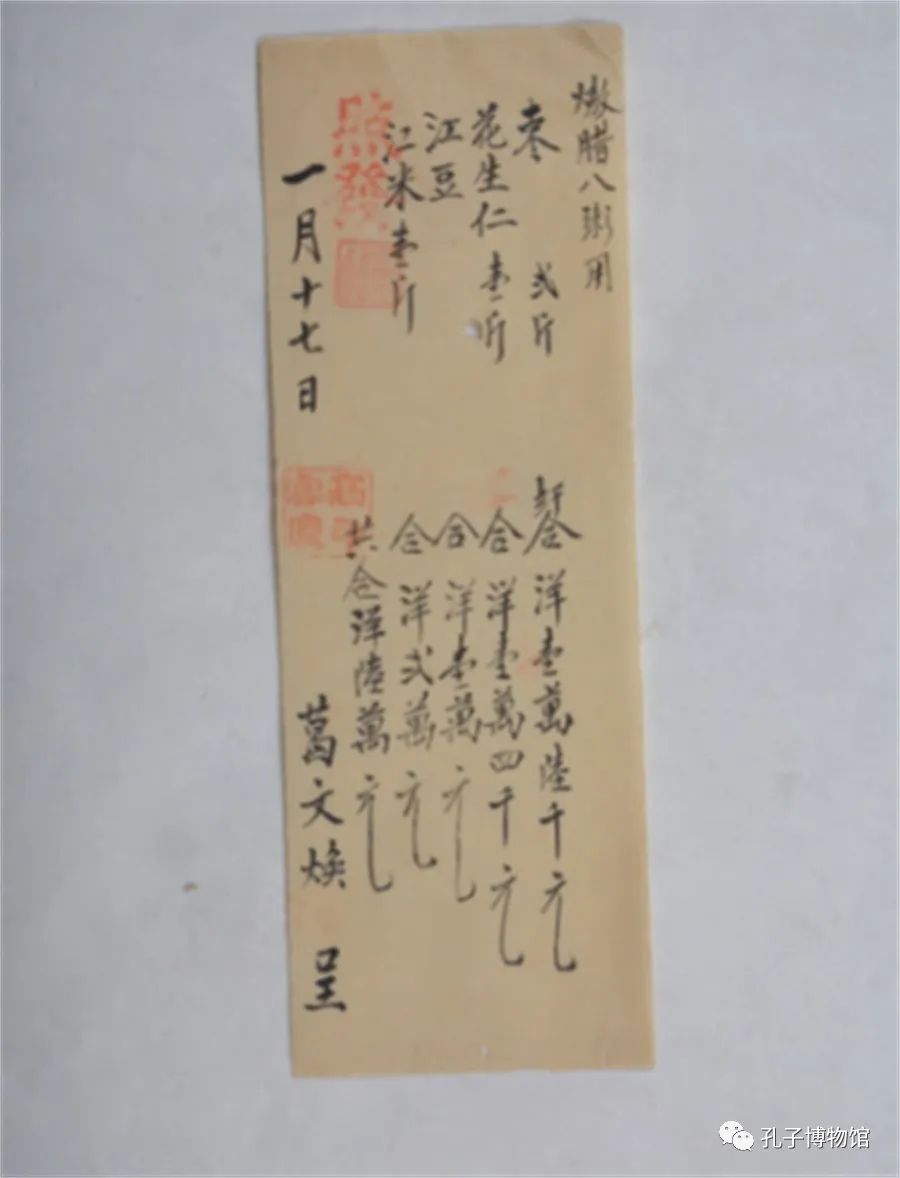 熬腊八粥用
枣 弍斤 合洋壹萬陸千元
花生仁 壹斤 合洋壹萬四千元
江豆 合洋壹萬元
江米壹斤 合洋弍萬元
共合洋陸萬元
照發
一月十七日 葛文焕 呈
孔子博物馆